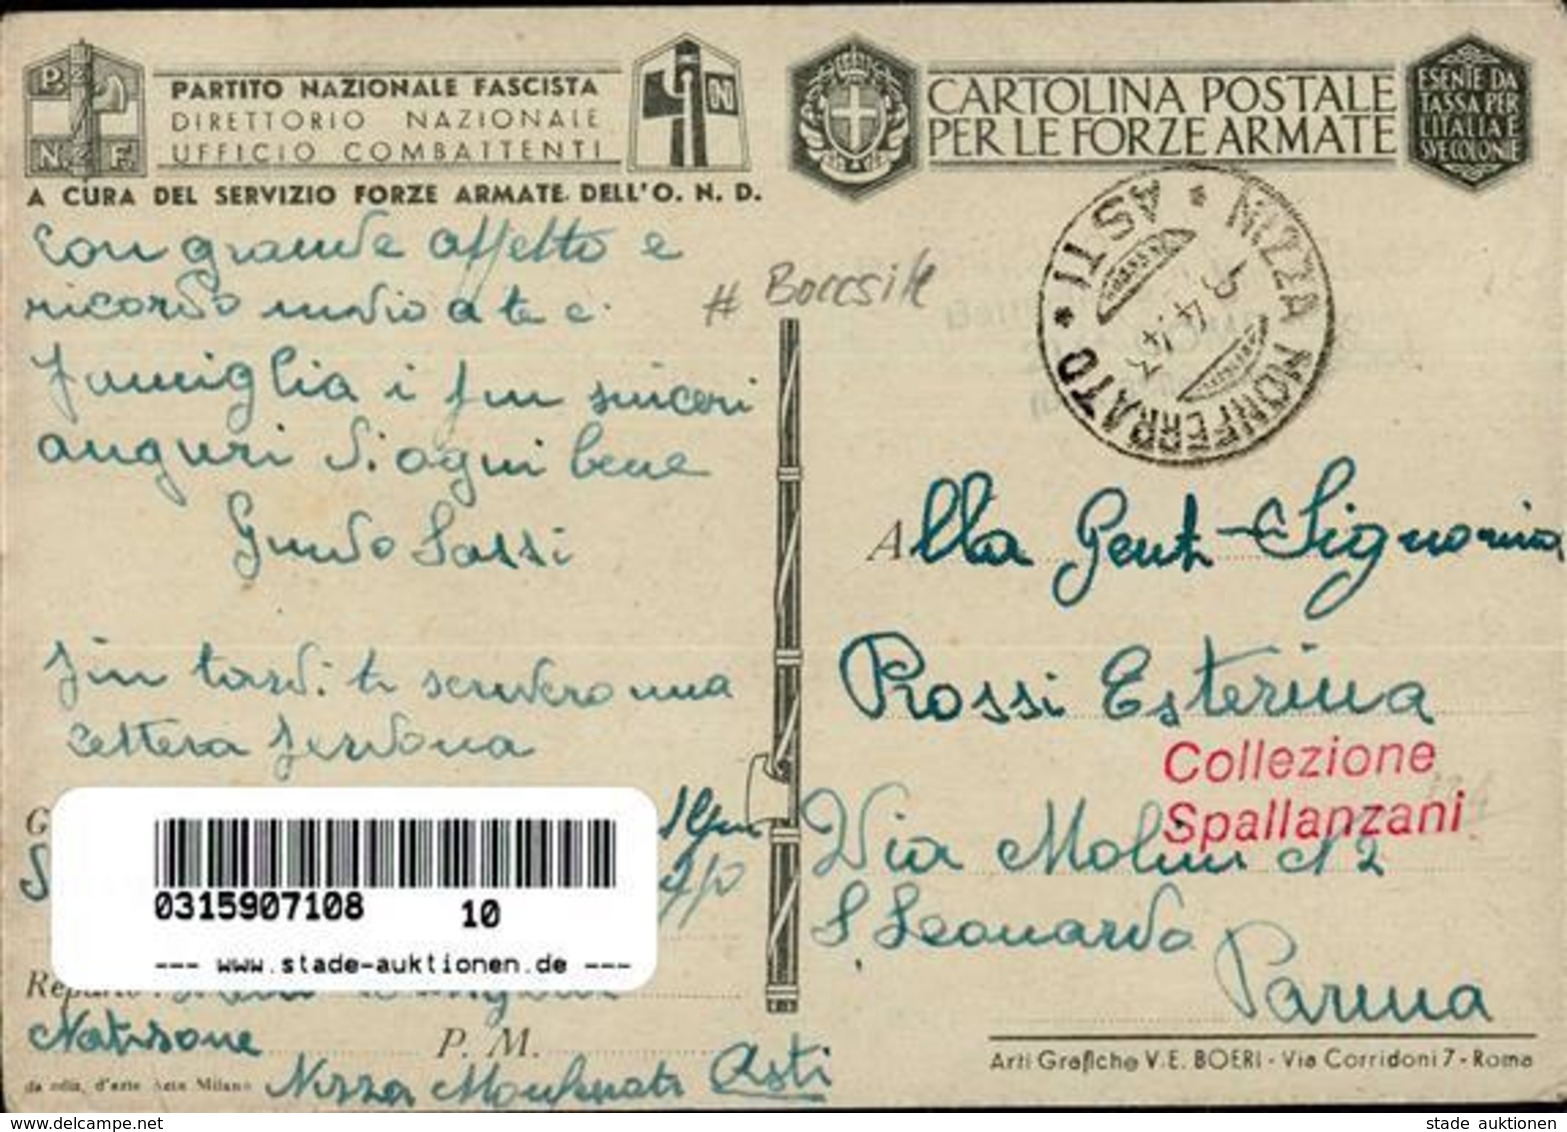 P. N. F.
PARTITO NAZIONALE FASCISTA
DIRETTORIO NAZIONALE
UFFICIO COMBATTENTI
A CURA DEL SERVIZIO FORZE ARMATE DELL'O. N. D.
CARTOLINA POSTALE
PER LE FORZE ARMATE
ESENTE DA
TASSA PER
L'ITALIA E
SVE COLONIE
NIZZA MONFERRATO * ASTI *
5.4.43
con grande affetto e
ricordo invio a te e
famiglia i fiu sinceri
auguri di ogni bene
Guido Sassi
fiu tardi ti scrivero una
lettera ferdona
# Boccsile
Alla Gent. Signorina
Rossi Esterina
Collezione
Spallanzani
Via Molini N 2
S Leonardo
Parma
G
S
0315907108 10
--- www.stade-auktionen.de ---
Reparto:
Natisone P. M.
Nizza Monferrato Asti
da ediz. d'arte Acta Milano
Arti Grafiche V. E. BOERI - Via Corridoni 7 - Roma
stade auktionen